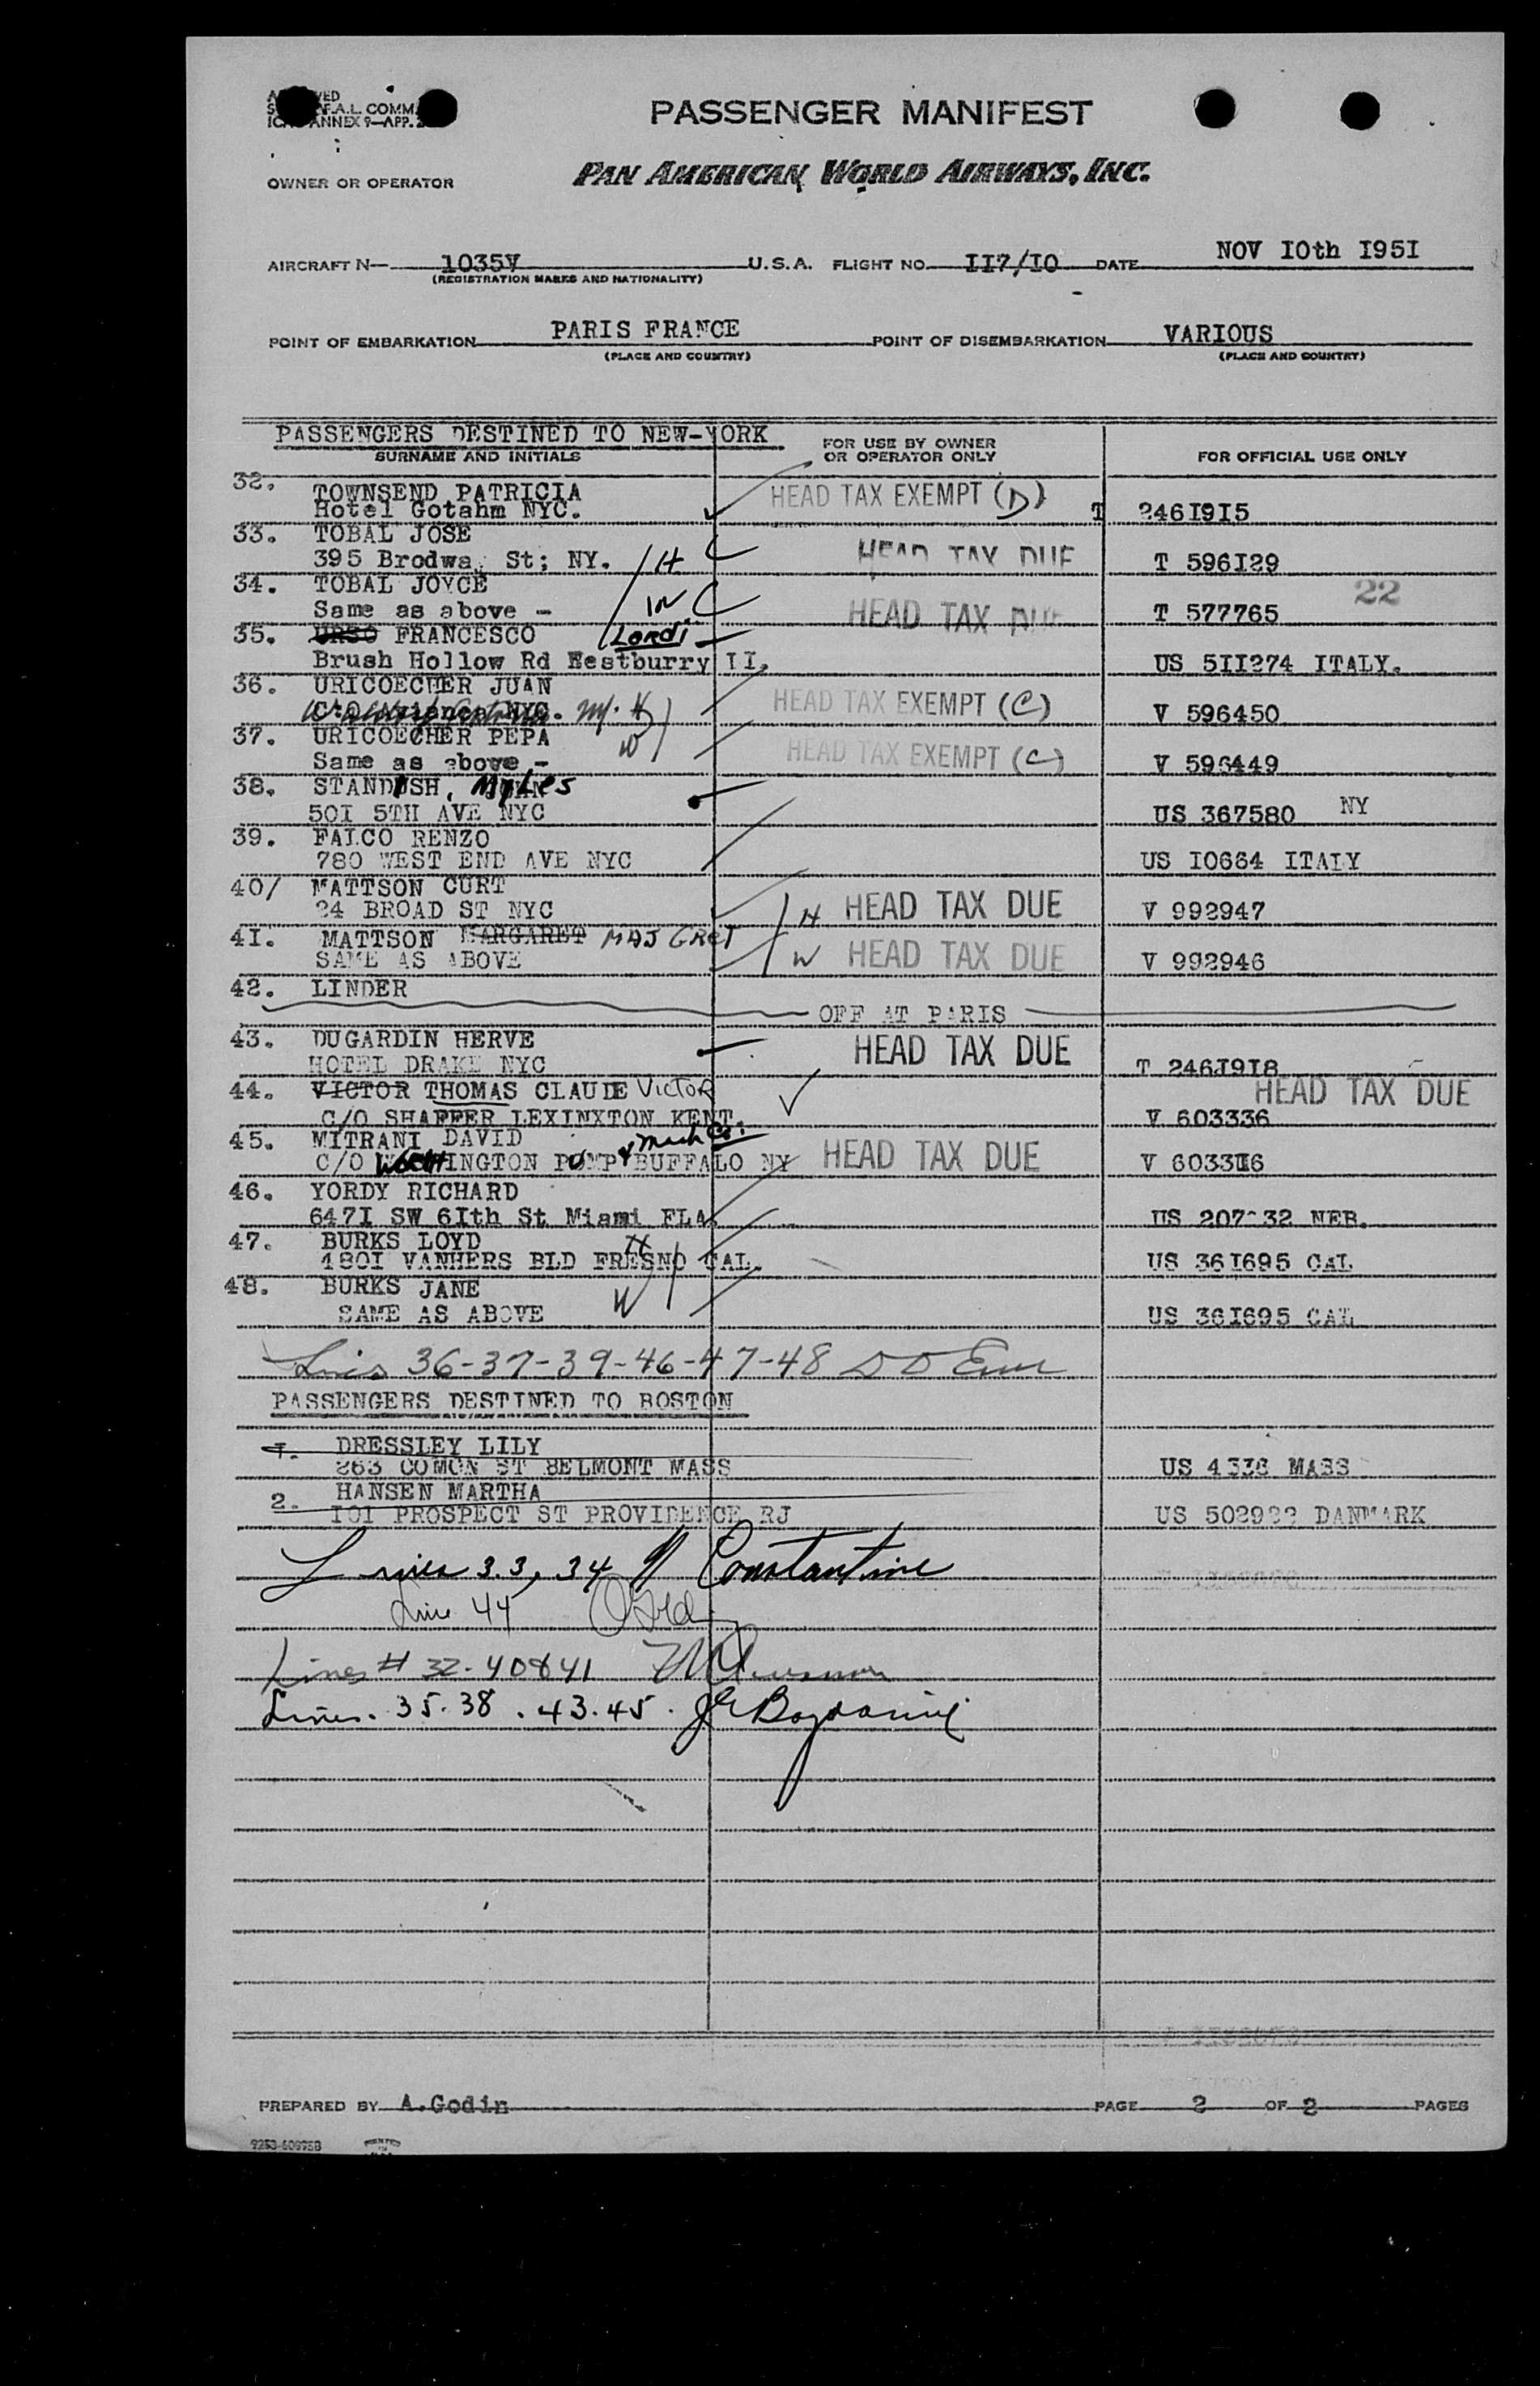 PASSENGER MANIFEST
PAN AMERICAN WORLD AIRWAYS, INC.
OWNER OR OPERATOR
AIRCRAFT N— 1035V U.S.A. FLIGHT NO. II7/IO DATE NOV IOth I95I
(REGISTRATION MARKS AND NATIONALITY)
POINT OF EMBARKATION PARIS FRANCE POINT OF DISEMBARKATION VARIOUS
(PLACE AND COUNTRY) (PLACE AND COUNTRY)
PASSENGERS DESTINED TO NEW-YORK
SURNAME AND INITIALS FOR USE BY OWNER OR OPERATOR ONLY FOR OFFICIAL USE ONLY
32. TOWNSEND PATRICIA HEAD TAX EXEMPT (D)
Hotel Gotahm NYC. T 246I9I5
33. TOBAL JOSE
395 Brodwa St; NY. H HEAD TAX DUE T 596I29
34. TOBAL JOYCE 22
Same as above - W HEAD TAX DUE T 577765
35. URSO FRANCESCO Lordi
Brush Hollow Rd Westburry II. US 5II274 ITALY.
36. URICOECHER JUAN HEAD TAX EXEMPT (C)
NYC. H V 596450
37. URICOECHER PEPA W HEAD TAX EXEMPT (C)
Same as above - V 596449
38. STANDISH, Myles
50I 5TH AVE NYC US 367580 NY
39. FALCO RENZO
780 WEST END AVE NYC US I0664 ITALY
40/ MATTSON CURT HEAD TAX DUE
24 BROAD ST NYC H V 992947
4I. MATTSON MARGARET MAJ GRET HEAD TAX DUE
SAME AS ABOVE W V 992946
42. LINDER
OFF AT PARIS
43. DUGARDIN HERVE HEAD TAX DUE
HOTEL DRAKE NYC T 246I9I8
44. VICTOR THOMAS CLAUDE VICTOR HEAD TAX DUE
C/O SHAFFER LEXINXTON KENT. V 603336
45. MITRANI DAVID & Mach Co. HEAD TAX DUE
C/O WORTHINGTON PUMP BUFFALO NY V 6033I6
46. YORDY RICHARD
647I SW 6Ith St Miami FLA. US 207 32 NEB.
47. BURKS LOYD H
480I VANHERS BLD FRESNO CAL. US 36I695 CAL
48. BURKS JANE W
SAME AS ABOVE US 36I695 CAL
Lines 36-37-39-46-47-48
PASSENGERS DESTINED TO BOSTON
I. DRESSLEY LILY
263 COMON ST BELMONT MASS US 4336 MASS
2. HANSEN MARTHA
IOI PROSPECT ST PROVIDENCE RJ US 502922 DANMARK
Lines 33, 34 Constantine
Line 44
Lines # 32-40&41
Lines. 35.38.43.45.
PREPARED BY A.Godin PAGE 2 OF 2 PAGES